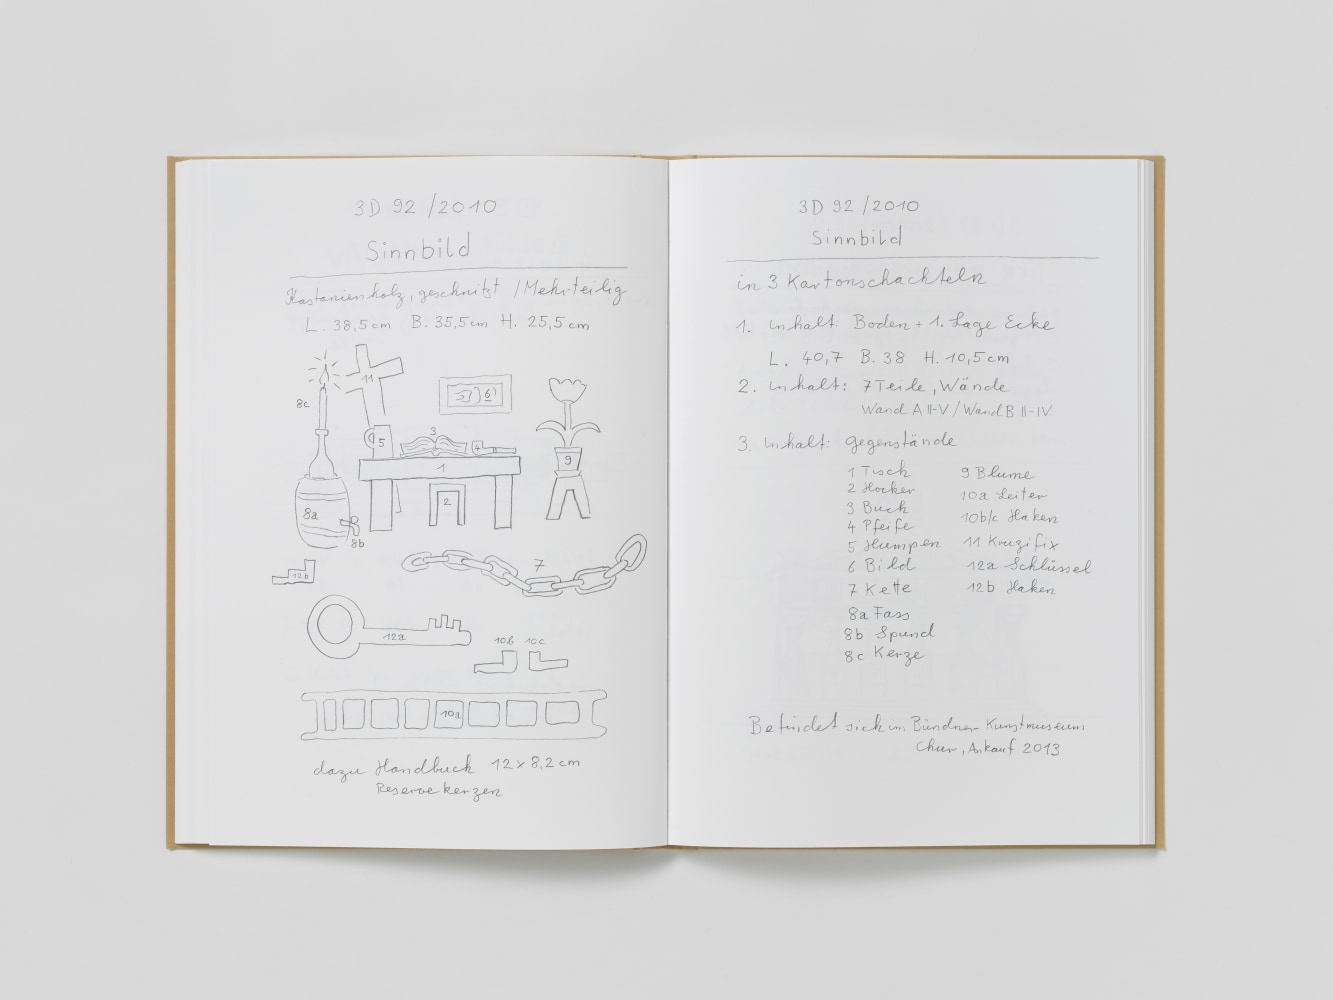 3D 92 / 2010
Sinnbild
Kastanienholz, geschnitzt / Mehrteilig
L. 38,5 cm B. 35,5 cm H. 25,5 cm
11
8c
6
5
3
4
1
9
2
8a
8b
7
12b
12a
10b 10c
10a
dazu Handbuch 12 x 8,2 cm
Reservekerzen
3D 92 / 2010
Sinnbild
in 3 Kartonschachteln
1. Inhalt: Boden + 1. Lage Ecke
L. 40,7 B. 38 H. 10,5 cm
2. Inhalt: 7 Teile, Wände
Wand A II-V / Wand B II-IV
3. Inhalt: Gegenstände
1 Tisch
2 Hocker
3 Buch
4 Pfeife
5 Humpen
6 Bild
7 Kette
8a Fass
8b Spund
8c Kerze
9 Blume
10a Leiter
10b/c Haken
11 Kruzifix
12a Schlüssel
12b Haken
Befindet sich im Bündner Kunstmuseum
Chur, Ankauf 2013